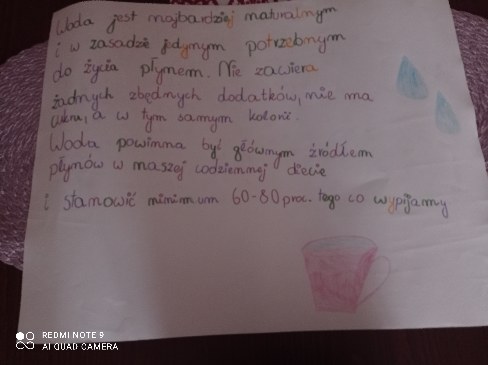 Woda jest najbardziej naturalnym
i w zasadzie jedynym potrzebnym
do życia płynem. Nie zawiera
żadnych zbędnych dodatków, nie ma
cukru, a w tym samym kalorii.
Woda powinna być głównym źródłem
płynów w naszej codziennej diecie
i stanowić minimum 60-80 proc. tego co wypijamy
REDMI NOTE 9
AI QUAD CAMERA